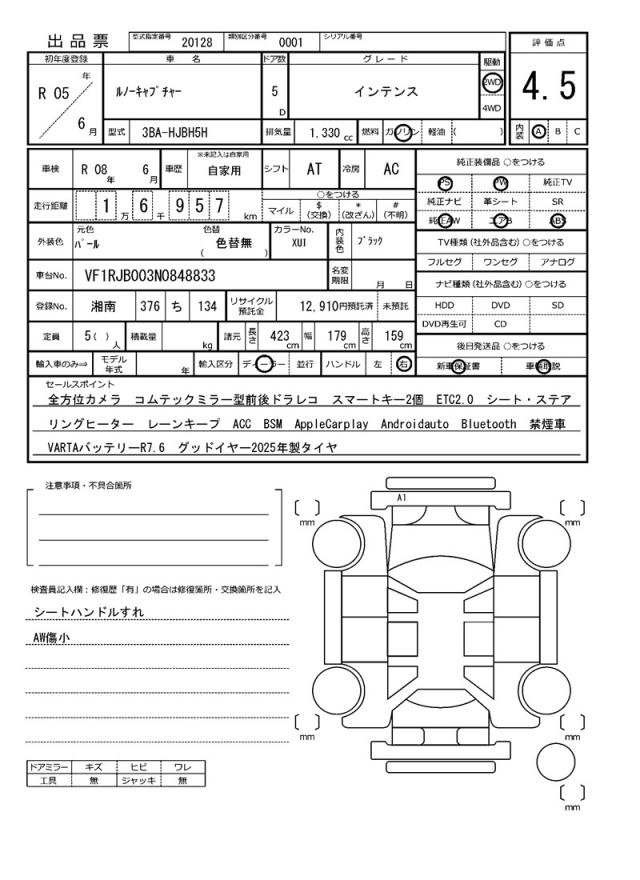 出品票 型式指定番号 20128 類別区分番号 0001 シリアル番号
評価点
4.5
内装 A B C
初年度登録 車名 ドア数 グレード 駆動
R 05 年 6 月 ルノーキャプチャー 5 D インテンス 2WD 4WD
型式 3BA-HJBH5H 排気量 1.330 cc 燃料 ガソリン 軽油 ( )
車検 R 08 年 6 月 車歴 ※未記入は自家用 自家用 シフト AT 冷房 AC
走行距離 1 万 6 千 9 5 7 km ○をつける マイル $ (交換) * (改ざん) # (不明)
外装色 元色 パール 色替 ( 色替無 ) カラーNo. XUI 内装色 ブラック
車台No. VF1RJB003N0848833 名変期限 月 日
登録No. 湘南 376 ち 134 リサイクル預託金 12,910円預託済 未預託
定員 5( ) 人 積載量 kg 諸元 長さ 423 cm 幅 179 cm 高さ 159 cm
輸入車のみ⇒ モデル年式 年 輸入区分 ディーラー 並行 ハンドル 左 右
純正装備品 ○をつける
PS PW 純正TV
純正ナビ 革シート SR
純正AW エアB ABS
TV種類 (社外品含む) ○をつける
フルセグ ワンセグ アナログ
ナビ種類 (社外品含む) ○をつける
HDD DVD SD
DVD再生可 CD
後日発送品 ○をつける
新車保証書 車輌取説
セールスポイント
全方位カメラ コムテックミラー型前後ドラレコ スマートキー2個 ETC2.0 シート・ステア
リングヒーター レーンキープ ACC BSM AppleCarplay Androidauto Bluetooth 禁煙車
VARTAバッテリーR7.6 グッドイヤー2025年製タイヤ
注意事項・不具合箇所
検査員記入欄：修復歴「有」の場合は修復箇所・交換箇所を記入
シートハンドルすれ
AW傷小
ドアミラー キズ ヒビ ワレ
工具 無 ジャッキ 無
A1
[ ] mm
[ ] mm
[ ] mm
[ ] mm
[ ] mm